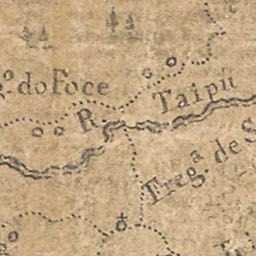 g.º do Foce
R Taipú
Freg.ª de S